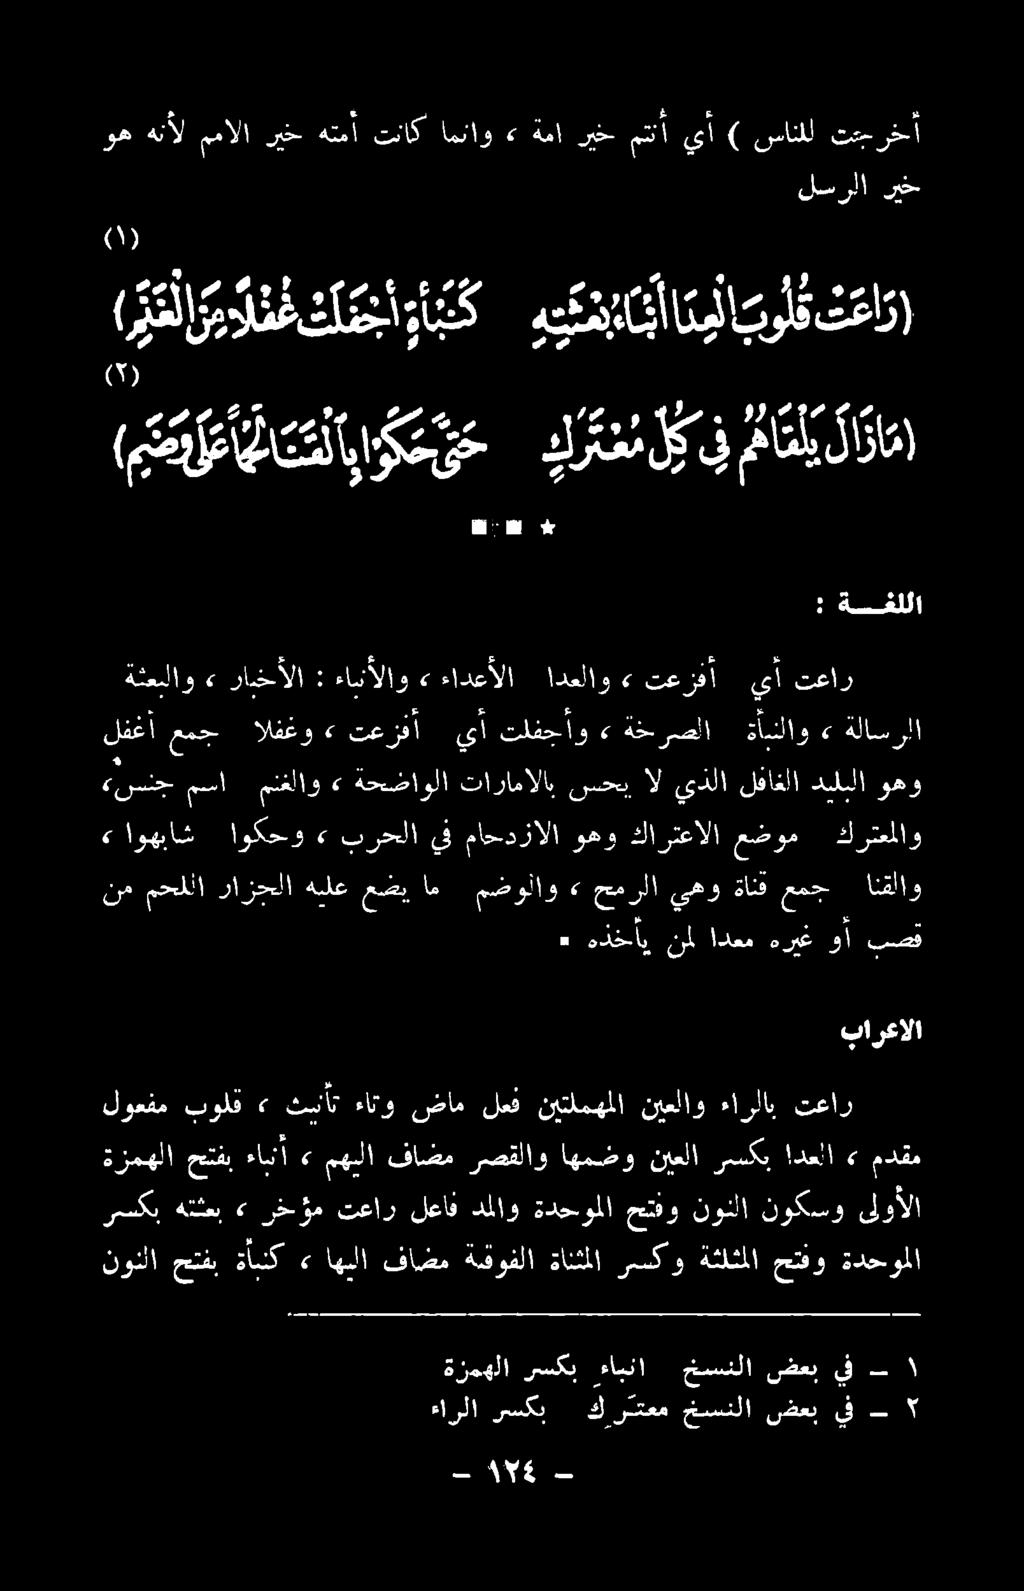 أخرجت للناس ) أي أنتم خير امة ، وانما كانت أمته خير الامم لأنه هو
خير الرسل
(١)
(رَاعَتْ قُلُوبَ الْعِدَا أَنْبَاءُ بِعْثَتِهِ كَنَبْأَةٍ أَجْفَلَتْ غُفْلًا مِنَ الْغَنَمِ)
(٢)
(مَازَالَ يَلْقَاهُمُ فِي كُلِّ مُعْتَرَكٍ حَتَّى حَكَوْا بِالْقَنَا لَحْمًا عَلَى وَضَمِ)
اللغــة :
راعت أي أفزعت ، والعدا الأعداء ، والأنباء : الأخبار ، والبعثة
الرسالة ، والنبأة الصرخة ، وأجفلت أي أفزعت ، وغفلا جمع أغفل
وهو البليد الغافل الذي لا يحس بالامارات الواضحة ، والغنم اسم جنس،
والمعترك موضع الاعتراك وهو الازدحام في الحرب ، وحكوا شابهوا ،
والقنا جمع قناة وهي الرمح ، والوضم ما يضع عليه الجزار اللحم من
قصب أو غيره معدا لمن يأخذه ▪
الاعراب
راعت بالراء والعين المهملتين فعل ماض وتاء تأنيث ، قلوب مفعول
مقدم ، العدا بكسر العين وضمها والقصر مضاف اليهم ، أنباء بفتح الهمزة
الأولى وسكون النون وفتح الموحدة والمد فاعل راعت مؤخر ، بعثته بكسر
الموحدة وفتح المثلثة وكسر المثناة الفوقية مضاف اليها ، كنبأة بفتح النون
١ – في بعض النسخ انباءِ بكسر الهمزة
٢ – في بعض النسخ معتَرِك بكسر الراء
– ١٢٤ –